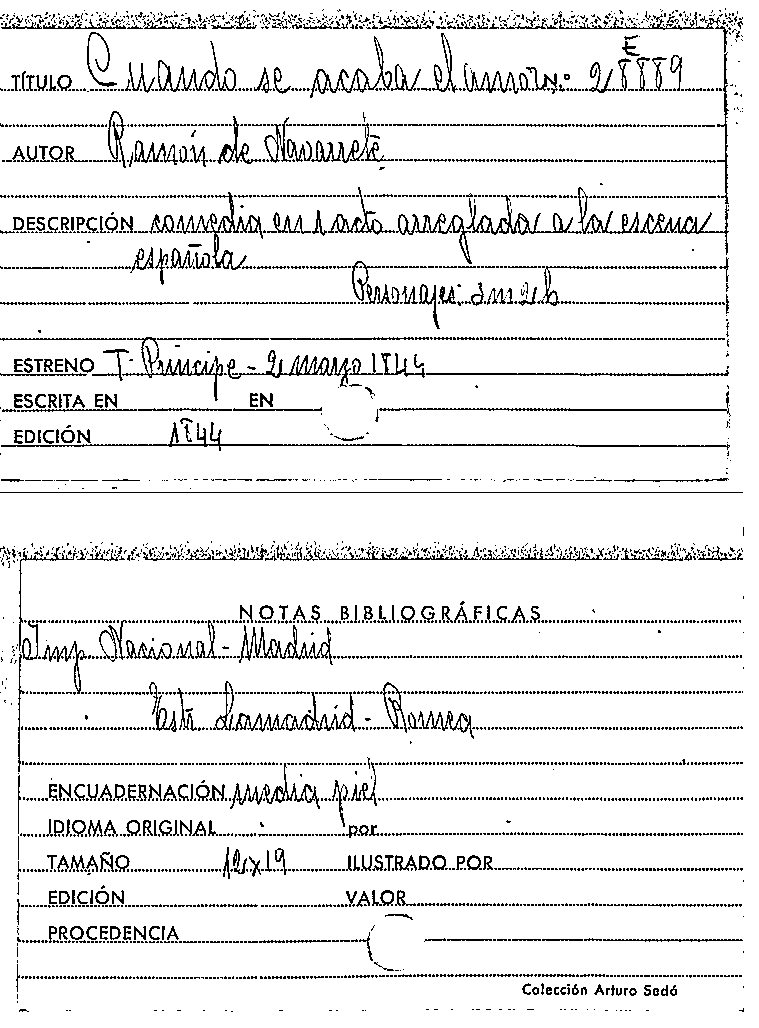 TÍTULO Cuando se acaba el amor N.º 28889
E
AUTOR Ramón de Navarrete
DESCRIPCIÓN comedia en 1 acto arreglada a la escena
española
Personajes: 3m 2h
ESTRENO T. Príncipe - 2 marzo 1844
ESCRITA EN EN
EDICIÓN 1844
NOTAS BIBLIOGRÁFICAS
Imp Nacional - Madrid
Estr Lamadrid - Romea
ENCUADERNACIÓN media piel
IDIOMA ORIGINAL por
TAMAÑO 12x19 ILUSTRADO POR
EDICIÓN VALOR
PROCEDENCIA
Colección Arturo Sedó